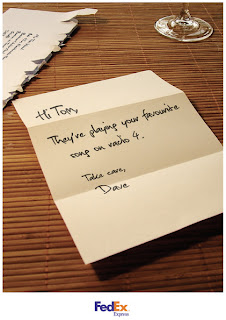 Hi Tom,
They're playing your favourite
song on radio 4.
Take care,
Dave
FedEx
Express